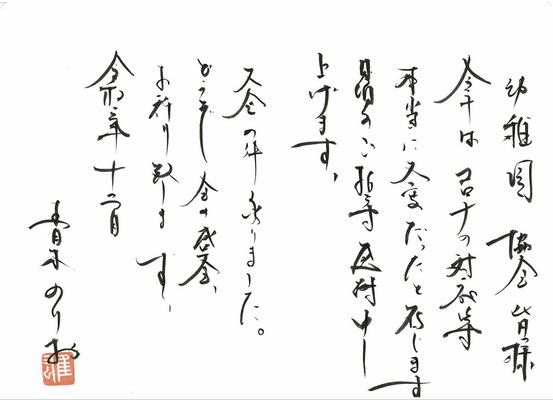 幼稚園 協会 皆様
今年は コロナの対応等
本当に大変だったと存じます
日頃のご指導感謝申し
上げます。
入金の件承りました。
どうぞ
お祈り致します。
令和二年 十二月
青木のりお